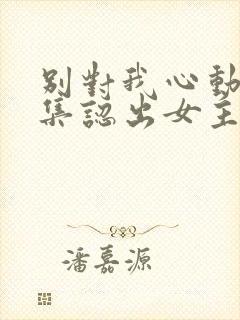 別對我心動
集認出女主
潘嘉源